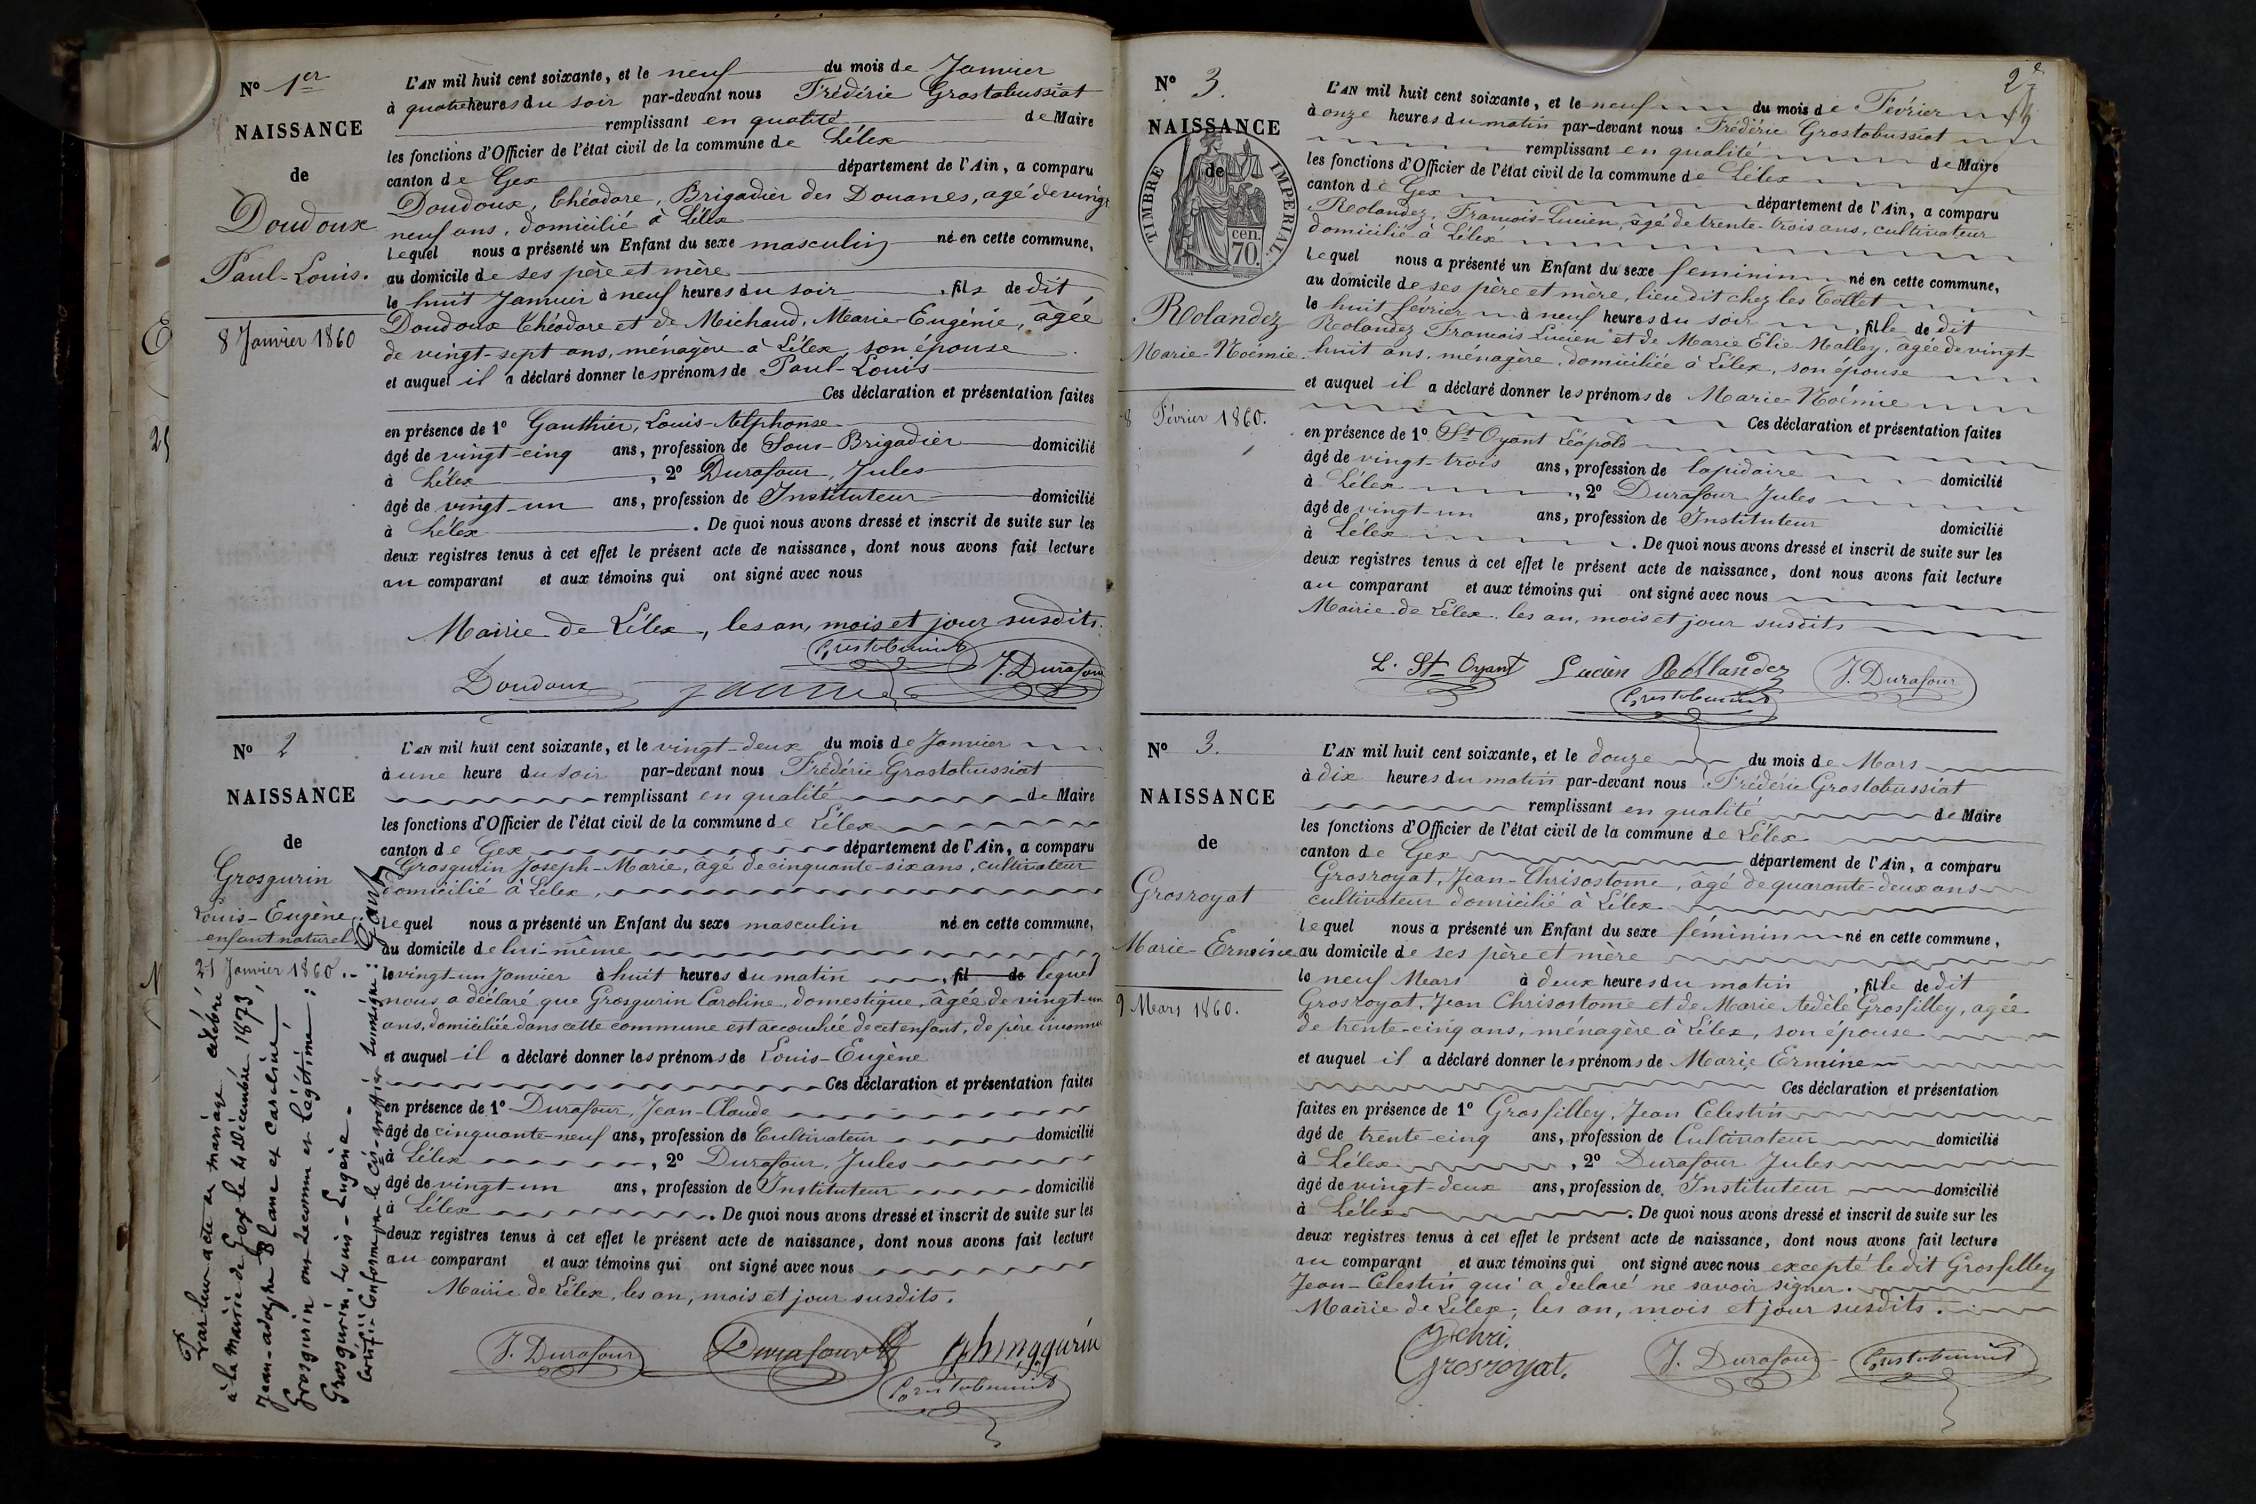 N° 1er
NAISSANCE
de
Doudoux
Paul-Louis.
8 Janvier 1860
L'AN mil huit cent soixante, et le neuf du mois de Janvier
à quatre heures du soir par-devant nous Frédéric Grostabussiat
remplissant en qualité de Maire
les fonctions d'Officier de l'état civil de la commune de Lélex
canton de Gex département de l'Ain, a comparu
Doudoux, Théodore, Brigadier des Douanes, agé de vingt
neuf ans, domicilié à Lélex
Lequel nous a présenté un Enfant du sexe masculin né en cette commune,
au domicile de ses père et mère
le huit Janvier à neuf heures du soir, fils de dit
Doudoux Théodore et de Michaud, Marie-Eugénie, âgée
de vingt-sept ans, ménagère à Lélex, son épouse
et auquel il a déclaré donner les prénoms de Paul-Louis
Ces déclaration et présentation faites
en présence de 1° Gauthier, Louis-Alphonse
âgé de vingt-cinq ans, profession de Sous-Brigadier domicilié
à Lélex, 2° Durafour, Jules
âgé de vingt-un ans, profession de Instituteur domicilié
à Lélex. De quoi nous avons dressé et inscrit de suite sur les
deux registres tenus à cet effet le présent acte de naissance, dont nous avons fait lecture
au comparant et aux témoins qui ont signé avec nous
Mairie de Lélex, les an, mois et jour susdits.
Doudoux
J. Durafour
N° 2
NAISSANCE
de
Grosgurin
Louis-Eugène,
enfant naturel.
21 Janvier 1860.
Par leur acte de mariage célébré
à la mairie de Gex le 4 Décembre 1873,
Jean-adolphe Blanc et caroline
Grosgurin ont reconnu et légitimé:
Grosgurin, Louis-Eugène.
L'AN mil huit cent soixante, et le vingt-deux du mois de Janvier
à une heure du soir par-devant nous Frédéric Grostabussiat
remplissant en qualité de Maire
les fonctions d'Officier de l'état civil de la commune de Lélex
canton de Gex département de l'Ain, a comparu
Grosgurin Joseph-Marie, âgé de cinquante-six ans, cultivateur
domicilié à Lélex,
Lequel nous a présenté un Enfant du sexe masculin né en cette commune,
au domicile de lui-même
le vingt-un Janvier à huit heures du matin, fil de lequel
nous a déclaré que Grosgurin Caroline, domestique, âgée de vingt-un
ans, domiciliée dans cette commune est accouchée de cet enfant, de père inconnu
et auquel il a déclaré donner les prénoms de Louis-Eugène
Ces déclaration et présentation faites
en présence de 1° Durafour, Jean-Claude
âgé de cinquante-neuf ans, profession de Cultivateur domicilié
à Lélex, 2° Durafour, Jules
âgé de vingt-un ans, profession de Instituteur domicilié
à Lélex. De quoi nous avons dressé et inscrit de suite sur les
deux registres tenus à cet effet le présent acte de naissance, dont nous avons fait lecture
au comparant et aux témoins qui ont signé avec nous
Mairie de Lélex, les an, mois et jour susdits.
J. Durafour
Durafour
2e
N° 3.
NAISSANCE
de
TIMBRE IMPERIAL.
cen.
70.
Rolandez
Marie-Noémie
8 Février 1860.
L'AN mil huit cent soixante, et le neuf du mois de Février
à onze heures du matin par-devant nous Frédéric Grostabussiat
remplissant en qualité de Maire
les fonctions d'Officier de l'état civil de la commune de Lélex
canton de Gex département de l'Ain, a comparu
Rolandez, François-Lucien, âgé de trente-trois ans, cultivateur
domicilié à Lélex
Lequel nous a présenté un Enfant du sexe feminin né en cette commune,
au domicile de ses père et mère, lieu dit chez les Collet
le huit février à neuf heures du soir, fille de dit
Rolandez François Lucien et de Marie Elie Malley, âgée de vingt-
huit ans, ménagère, domiciliée à Lélex, son épouse
et auquel il a déclaré donner les prénoms de Marie-Noémie
Ces déclaration et présentation faites
en présence de 1° St Oyant Léopold
âgé de vingt-trois ans, profession de lapidaire domicilié
à Lélex, 2° Durafour Jules
âgé de vingt-un ans, profession de Instituteur domicilié
à Lélex. De quoi nous avons dressé et inscrit de suite sur les
deux registres tenus à cet effet le présent acte de naissance, dont nous avons fait lecture
au comparant et aux témoins qui ont signé avec nous
Mairie de Lélex, les an, mois et jour susdits
L. St Oyant Lucien Rollandez J. Durafour
N° 3.
NAISSANCE
de
Grosroyat
Marie-Ermine
9 Mars 1860.
L'AN mil huit cent soixante, et le douze du mois de Mars
à dix heures du matin par-devant nous Frédéric Grostabussiat
remplissant en qualité de Maire
les fonctions d'Officier de l'état civil de la commune de Lélex
canton de Gex département de l'Ain, a comparu
Grosroyat, Jean-Chrisostome, âgé de quarante-deux ans
cultivateur domicilié à Lélex
Lequel nous a présenté un Enfant du sexe féminin né en cette commune,
au domicile de ses père et mère
le neuf Mars à deux heures du matin, fille de dit
Grosroyat, Jean Chrisostome et de Marie Adèle Grosfilley, agée
de trente-cinq ans, ménagère à Lélex, son épouse
et auquel il a déclaré donner les prénoms de Marie Ermine
Ces déclaration et présentation
faites en présence de 1° Grosfilley, Jean Celestin
âgé de trente-cinq ans, profession de Cultivateur domicilié
à Lélex, 2° Durafour Jules
âgé de vingt-deux ans, profession de Instituteur domicilié
à Lélex. De quoi nous avons dressé et inscrit de suite sur les
deux registres tenus à cet effet le présent acte de naissance, dont nous avons fait lecture
au comparant et aux témoins qui ont signé avec nous excepté le dit Grosfilley
Jean-Celestin qui a déclaré ne savoir signer.
Mairie de Lélex, les an, mois et jour susdits.
Grosroyat. J. Durafour